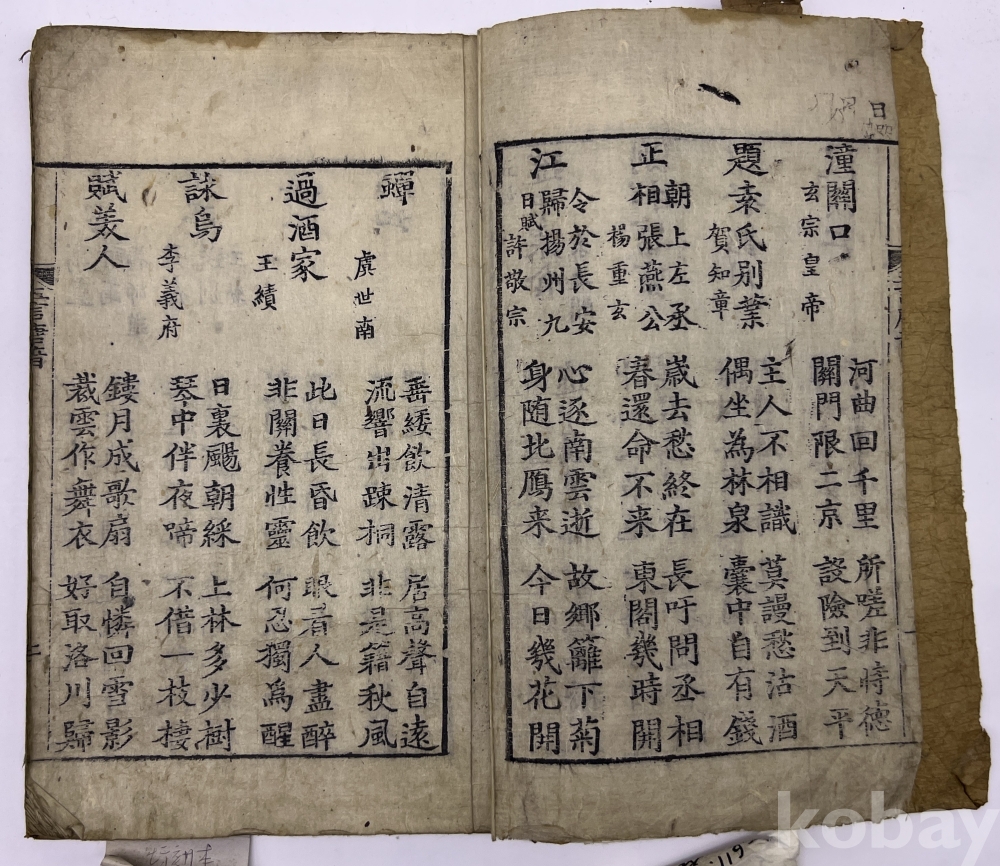 潼關口
玄宗皇帝
河曲回千里
關門限二京
所嗟非恃德
設險到天平
題素氏別業
賀知章
主人不相識
偶坐為林泉
莫謾愁沽酒
囊中自有錢
正
朝上左丞
相張燕公
楊重玄
歲去愁終在
春還命不来
長吁問丞相
東閣幾時開
江
令於長安
歸揚州九
日賦
許敬宗
心逐南雲逝
身随北鴈来
故鄉籬下菊
今日幾花開
蟬
虞世南
垂緌飲清露
流響出踈桐
居高聲自遠
非是籍秋風
過酒家
王績
此日長昏飲
非關養性靈
眼看人盡醉
何忍獨爲醒
詠烏
李義府
日裏颺朝綵
琴中伴夜啼
上林多少樹
不借一枝棲
賦美人
鏤月成歌扇
裁雲作舞衣
自憐回雪影
好取洛川歸
五言唐音
kobay